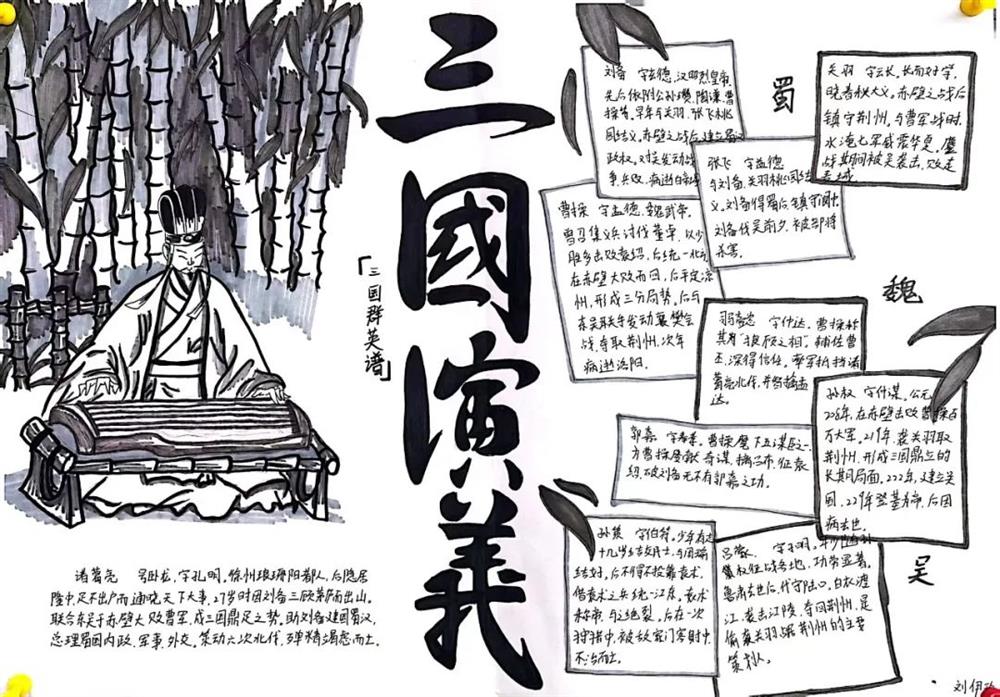 三國演義
「三国群英谱」
诸葛亮 号卧龙，字孔明，徐州琅琊阳都人，后隐居
隆中，足不出户而通晓天下大事，27岁时因刘备三顾茅庐而出山。
联合东吴于赤壁大败曹军，成三国鼎足之势。助刘备建国蜀汉，
总理蜀国内政、军事、外交。策动六次北伐，殚精竭虑而亡。
蜀
刘备 字玄德，汉昭烈皇帝
先后依附公孙瓒、陶谦、曹
操等，早年与关羽、张飞桃
园结义。赤壁之战后，建立蜀汉
政权。对吴发动战
争兵败，病逝白帝
关羽 字云长，长而好学，
晓春秋大义。赤壁之战后
镇守荆州，与曹军战时，
水淹七军威震华夏，鏖
战期间被吴袭击，败走
张飞 字益德
与刘备、关羽桃园结
义。刘备得蜀后镇守阆中
刘备伐吴前夕，被部将
杀害
魏
曹操 字孟德，魏武帝。
曾召集义兵讨伐董卓，以少
胜多击败袁绍，后统一北方
在赤壁大败而回，后平定凉
州，形成三分局势。后与
东吴联手发动襄樊会
战，夺取荆州，次年
病逝洛阳。
司马懿 字仲达，曹操称
其有“狼顾之相”。辅佐曹
丕，深得信任，率军抗拒诸
葛亮北伐，并擒孟
达。
郭嘉 字奉孝。曹操麾下五谋臣之一，
为曹操屡献奇谋，擒吕布、征袁
绍、破刘备无不有郭嘉之功。
吴
孙权 字仲谋。公元
208年，在赤壁击败曹操百
万大军，219年，袭关羽取
荆州，形成三国鼎立的
长期局面，222年，建立吴
国，229年登基为帝，后因
病去世。
孙策 字伯符。少年有志
十几岁结交名士，与周瑜
结好，后不得不投靠袁术，
借袁术之兵统一江东。袁术
称帝，与之绝裂，后在一次
狩猎中，被敌家门客射中
不治而亡。
吕蒙
权征战各地，功劳显著。
鲁肃去世后，代守陆口。白衣渡
江，袭击江陵，夺回荆州，是
偷袭关羽、据荆州的主要
策划人。
刘伊